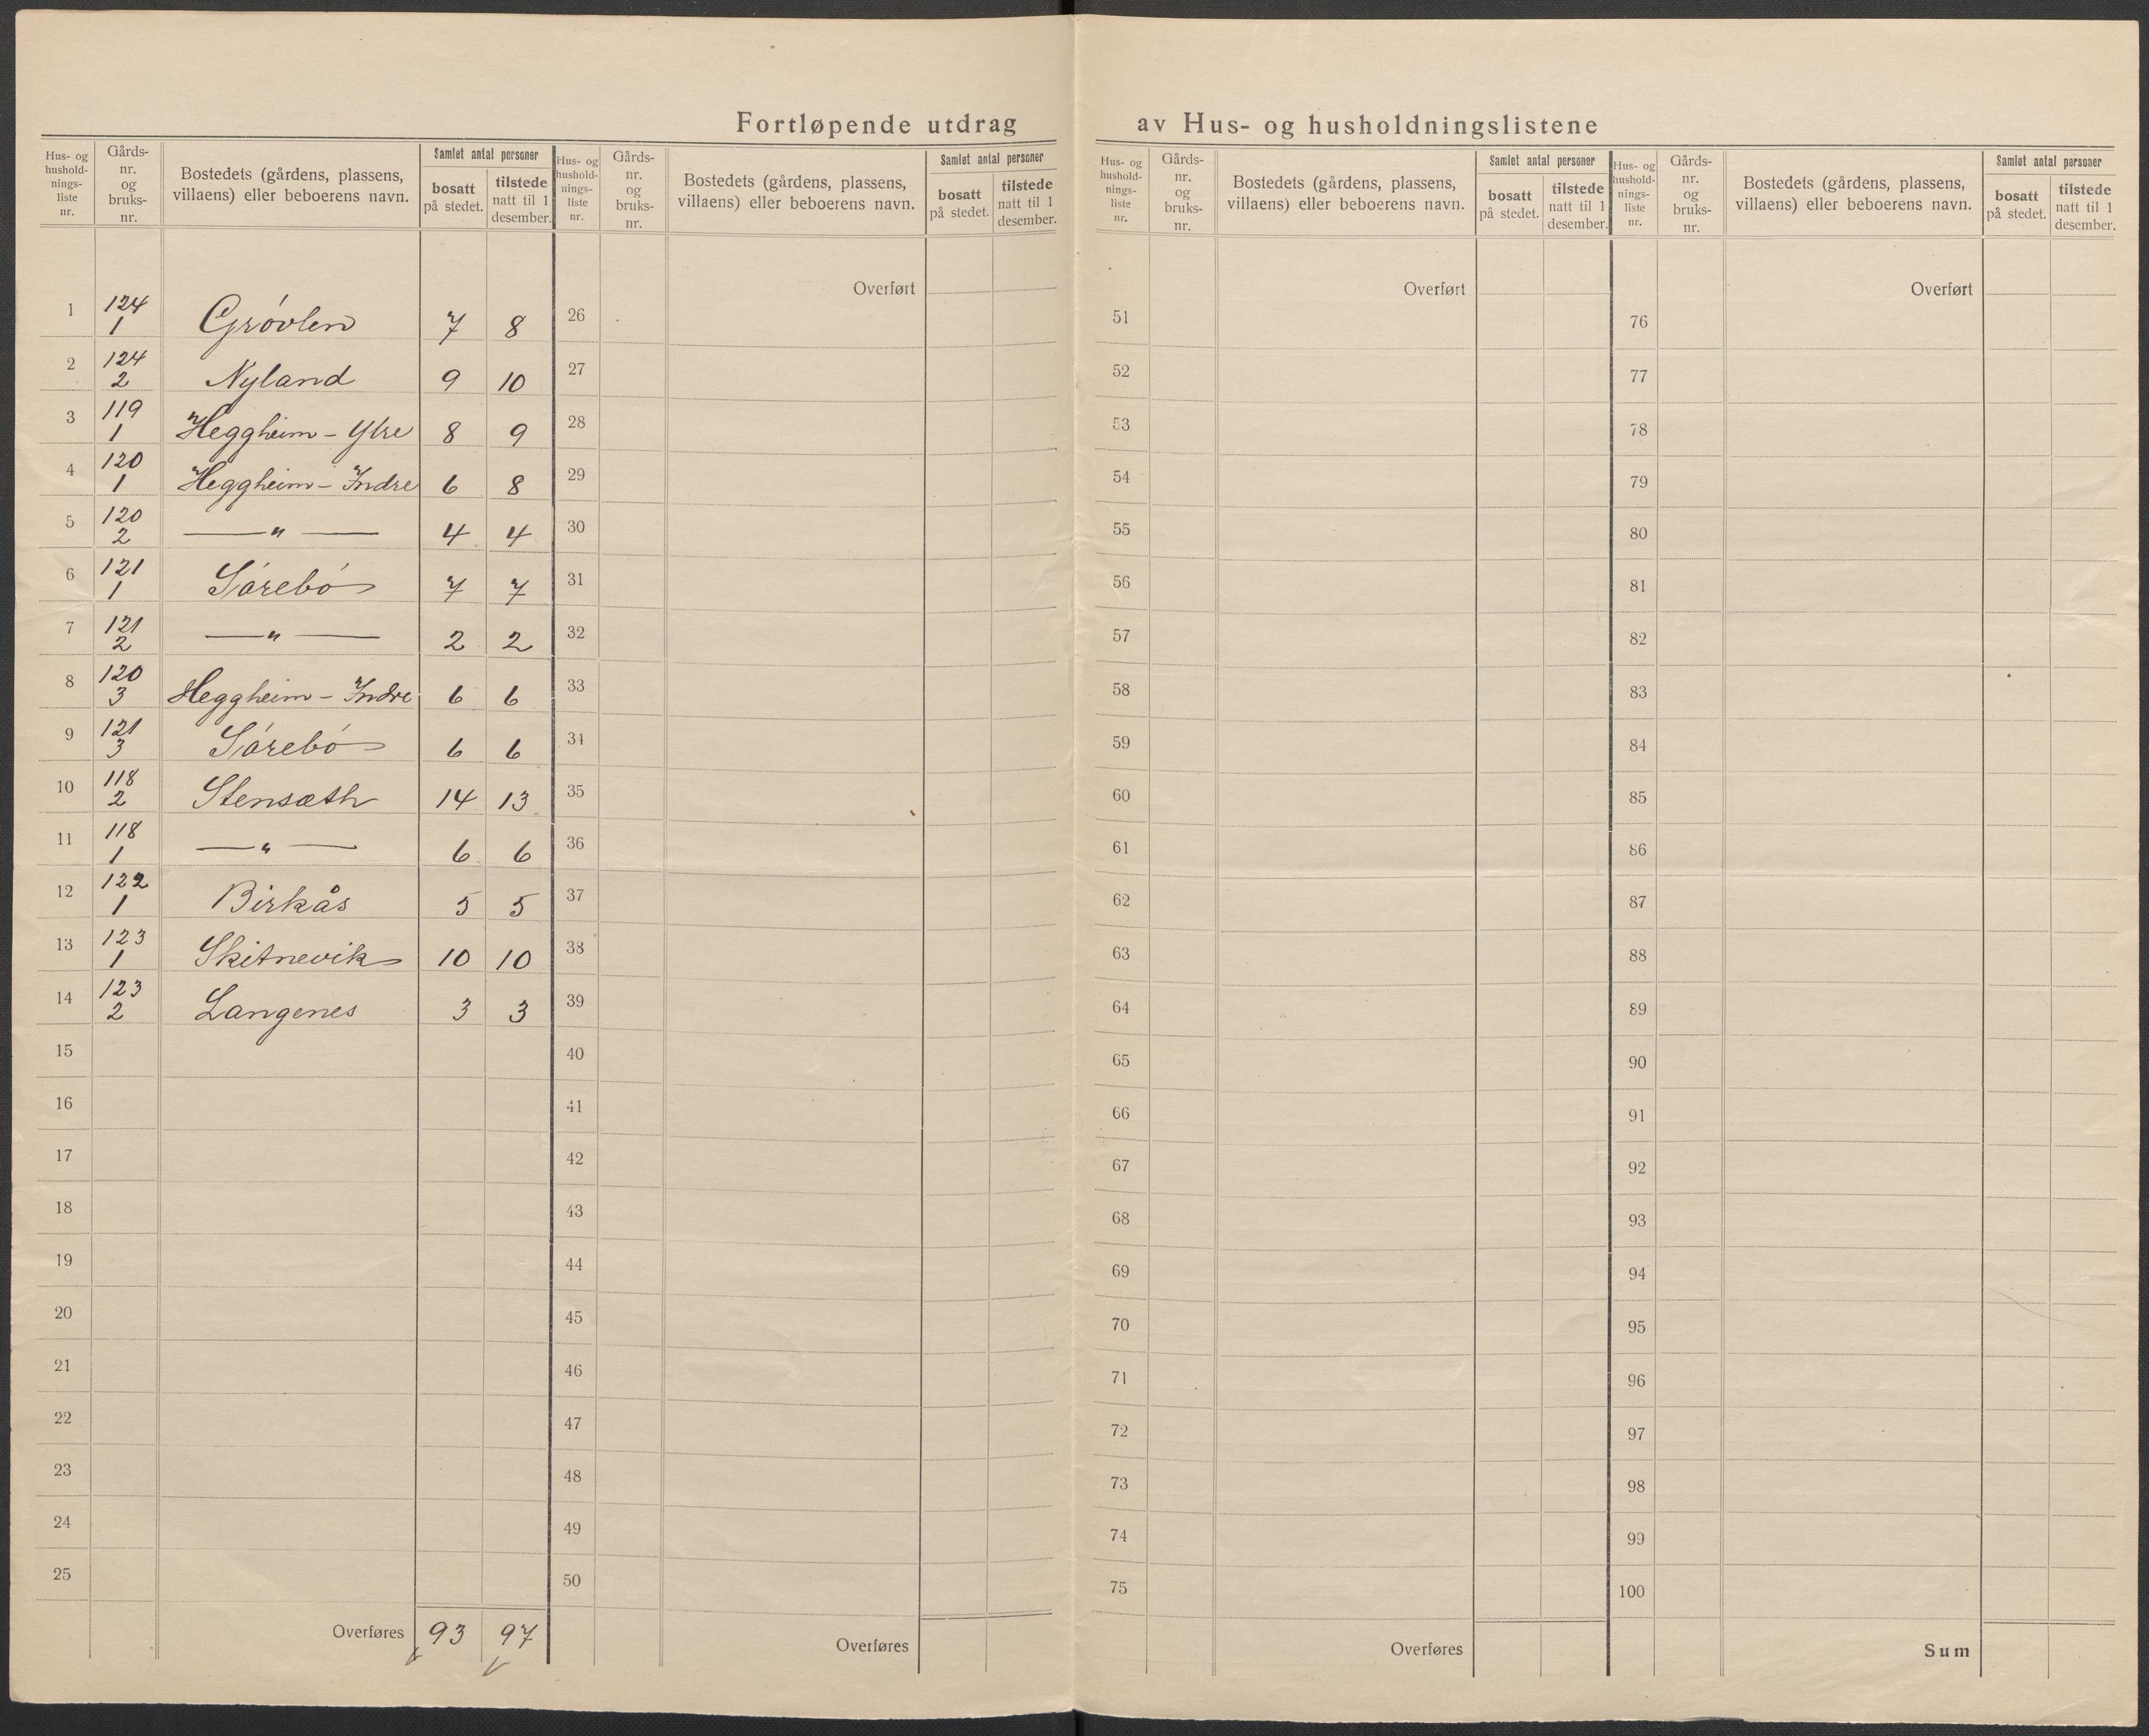 Fortløpende utdrag av Hus- og husholdningslistene
Hus- og hushold-nings-liste nr. Gårds-nr. og bruks-nr. Bostedets (gårdens, plassens, villaens) eller beboerens navn. Samlet antal personer bosatt på stedet. tilstede natt til 1 desember.
Hus- og hushold-nings-liste nr. Gårds-nr. og bruks-nr. Bostedets (gårdens, plassens, villaens) eller beboerens navn. Samlet antal personer bosatt på stedet. tilstede natt til 1 desember.
Hus- og hushold-nings-liste nr. Gårds-nr. og bruks-nr. Bostedets (gårdens, plassens, villaens) eller beboerens navn. Samlet antal personer bosatt på stedet. tilstede natt til 1 desember.
Hus- og hushold-nings-liste nr. Gårds-nr. og bruks-nr. Bostedets (gårdens, plassens, villaens) eller beboerens navn. Samlet antal personer bosatt på stedet. tilstede natt til 1 desember.
Overført Overført Overført
1 124 1 Grövlen 7 8 26 51 76
2 124 2 Nyland 9 10 27 52 77
3 119 1 Heggheim - Ytre 8 9 28 53 78
4 120 1 Heggheim - Indre 6 8 29 54 79
5 120 2 — " — 4 4 30 55 80
6 121 1 Sörebö 7 7 31 56 81
7 121 2 — " — 2 2 32 57 82
8 120 3 Heggheim - Indre 6 6 33 58 83
9 121 3 Sörebö 6 6 34 59 84
10 118 2 Stensæth 14 13 35 60 85
11 118 1 — " — 6 6 36 61 86
12 122 1 Birkås 5 5 37 62 87
13 123 1 Skitnevik 10 10 38 63 88
14 123 2 Langenes 3 3 39 64 89
15 40 65 90
16 41 66 91
17 42 67 92
18 43 68 93
19 44 69 94
20 45 70 95
21 46 71 96
22 47 72 97
23 48 73 98
24 49 74 99
25 50 75 100
Overføres 93 97 Overføres Overføres Sum